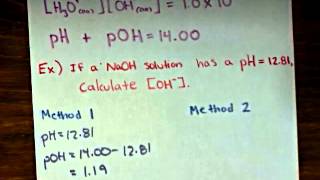 [H₃O⁺(aq)][OH⁻(aq)] = 1.0 x 10
pH + pOH = 14.00
Ex) If a NaOH solution has a pH = 12.81,
Calculate [OH⁻].
Method 1
Method 2
pH = 12.81
pOH = 14.00 - 12.81
= 1.19